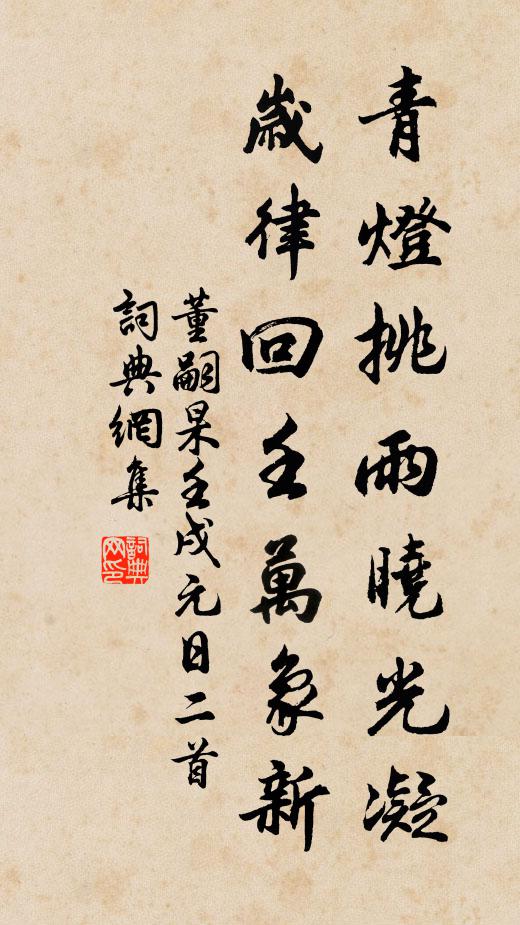 青燈挑雨曉光凝
歲律回壬萬象新
董嗣杲壬戌元日二首
詞典網集
詞典网印